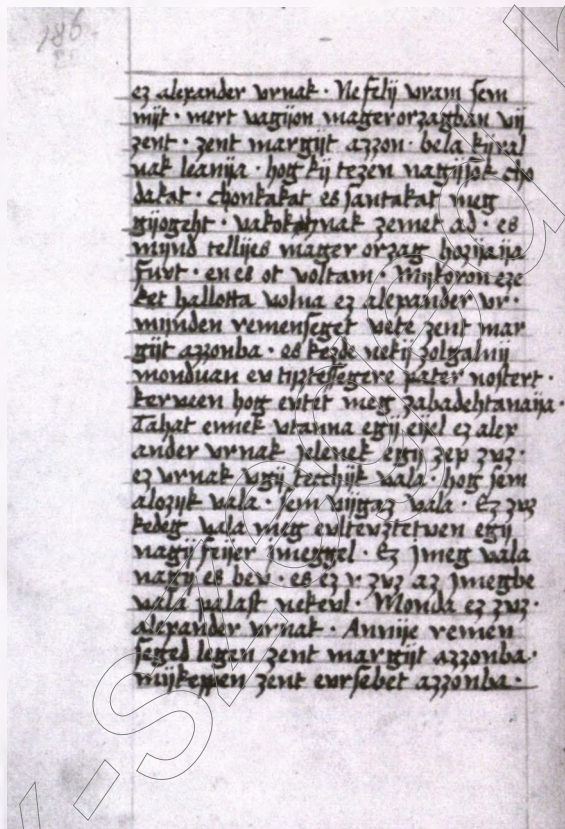 186
ez alexander vrnak · Ne felÿ vram sem
mÿt · mert vagÿon magerorzagban vÿ
zent · zent margÿt azzon · bela kÿral
nak leanÿa · hog kÿ tezen nagÿsok cho
dakat · chonkakat es santakat meg
gÿogeht · vakoknak zemet ad · es
mÿnd tellÿes mager orzag hozÿaÿa
futt · en es ot voltam · Mÿkoron eze
ket hallotta volna ez alexander vr ·
mÿnden remenseget vete zent mar
gÿt azzonba · es kezde nekÿ zolgalnÿ
monduan ev tÿztessegere pater nostert ·
kerveen hog evtet meg zabadehtanaÿa ·
Tahat ennek vtanna egÿ eÿel ez alex
ander vrnak jelenek egÿ zep zvz ·
ez vrnak vgÿ tecchÿk vala · hog sem
alozÿk vala · sem vÿgaz vala · Ez zvz
kedeg vala meg evltevztetven egÿ
nagÿ feÿer jmeggel · Ez jmeg vala
nagÿ es bev · es ez v zvz az jmegbe
vala palast nekevl · Monda ez zvz ·
alexander vrnak · Annÿe remen
seged legen zent margÿt azzonba ·
mÿkeppen zent eursebet azzonba ·